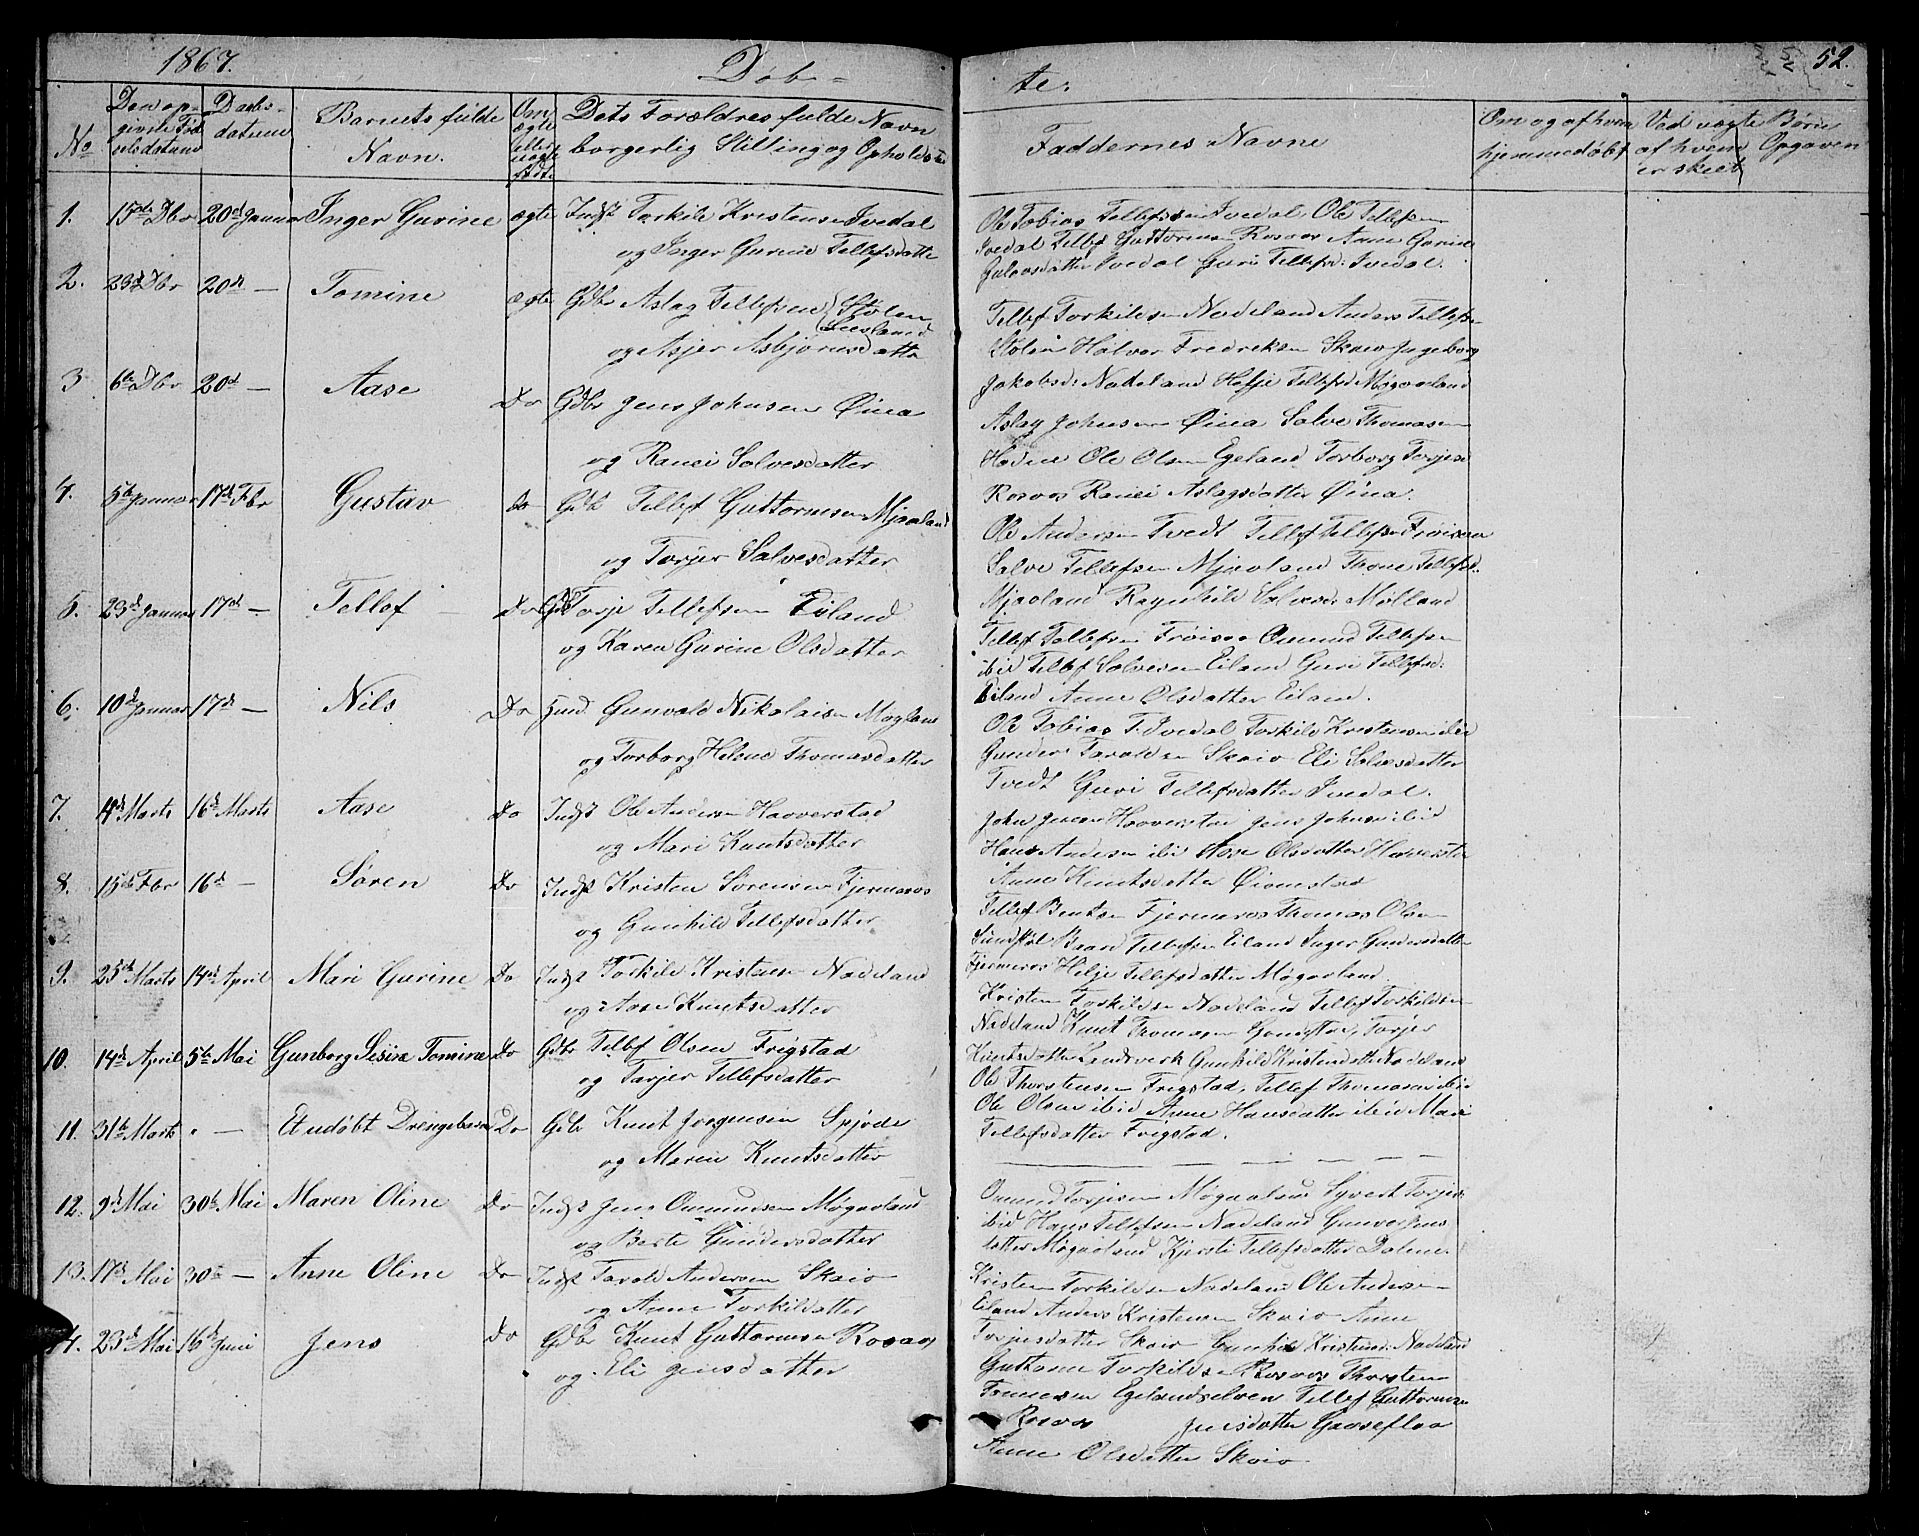 1867.
Døb-
te.
52.
No
Den op-
givne Fød
selsdatum
Daabs-
datum
Barnets fulde
Navn.
Om
ægte
eller
uægte
født.
Dets Forældres fulde Navn
borgerlig Stilling og Opholdst
Faddernes Navne
Om og af hvem
hjemmedøbt
Ved uægte Børn
af hvem Opgaven
er skeet
1. 15de Dbr 20de Januar Inger Gurine ægte Indst Torkild Kristensen Ivedal
og Inger Gurine Tellefsdatte
2. 23de Dbr 20de — Tomine ægte Gdbr Aslag Tellefsen Stølen
Eieland
og Asjer Asbjørnsdatte
3 6te Dbr 20de — Aase Do Gdbr Jens Johnsen Øina
og Ranei Salvesdatter
4. 5te Januar 17de Fbr Gustav do Gdb Tellef Guttormsen Mjaaland
og Torjer Salvesdatter
5. 23de Januar 17de — Tellef Do Gdb Torje Tellefsen Eiland
og Karen Gurine Olsdatter
6. 10de Januar 17de — Nils Do Gunvald Nikolaisen Møglan
og Torborg Helene Thomasdatter
7. 4de Marts 16de Marts Aase Do Indst Ole Andersen Haaverstad
og Mari Knutsdatter
8. 15de Fbr 16de — Søren Do Indst Kristen Sørensen Fjermeros
og Gunhild Tellefsdatter
9. 25de Marts 14de April Mari Gurine Do Indst Torkild Kristensen Nadeland
og Aase Knutsdatter
10. 14de April 5te Mai Gunborg Sesine Tomine Do Gdbr Tellef Olsen Frigstad
og Tarjer Tellefsdatter
11. 31te Marts " — Et udøbt Drengebarn Do Gdb Knut Jørgensen Spjøde
og Maren Knutsdatter
12. 9de Mai 30de Mai Maren Oline Do Indst Jens Omundsen Møgaaland
og Berte Gundersdatter
13. 17de Mai 30te — Anne Oline Do Indst Tarald Andersen Skaio
og Anne Torkildatter
14. 23de Mai 16de Juni Jens Do Gdbr Knut Guttormsen Rosaas
og Eli Jensdatter
Ole Tobias Tellefsen Ivedal Ole Tellefsen
Ivedal Tellef Guttormsen Rosaas Anne Gurine
Gulovsdatter Ivedal Guri Tellefsd: Ivedal.
Tellef Torkildsen Nadeland Anders Tellefsen
Stølen Halvor Fredriksen Skaio Ingeborg
Jakobsd: Nadeland Helje Tellefsd Møgaaland
Aslag Johnsen Øina Salve Thomasen
Ole Olsen Egeland Torborg Torjesd
Rosaas Ranei Aslagsdatter Øina.
Ole Andersen Tvedt Tellef Tellefsen Frøisaa
Salve Tellefsen Mjaaland Thone Tellefsd.
Mjaaland Ragnhild Salvesd: Mølland
Tellef Tellefsen Frøisaa Omund Tellefsen
ibid Tellef Salvesen Eiland Guri Tellefsd:
Eiland Anne Olsdatter Eiland.
Ole Tobias T. Ivedal Torkild Kristensen ibid
Gunder Taraldsen Skaio Eli Salvesdatter
Tvedt Guri Tellefsdatter Ivedal.
John Jensen Haaverstad Jens Johnsen ibid
Hans Andersen ibi Aase Olsdatter Haaversta
Anne Knutsdatter Øiomstad
Tellef Bentsen Fjermeros Thomas Olsen
Sundstøl Baard Tellefsen Eiland Inger Gundersdatte
Fjermeros Helje Tellefsdatter Møgaaland.
Kristen Torkildsen Nadeland Tellef Torkildsen
Nadeland Knut Thomasen Torjer
Knutsdatter Landsverk Gunhild Kristensdatte Nadeland
Ole Thorstensen Frigstad, Tellef Thomasen ibid
Ole Olsen ibid Anne Hansdatter ibid Mari
Tellefsdatter Frigstad.
— — — — — —
Omund Torjesen Møgaaland Syvert Torjes
ibid Hans Tellefsen Nadeland Gunvor Jens
datter Møgaaland Kjersti Tellefsdatter Dalene.
Kristen Torkildsen Nadeland Ole Andersen
Eiland Anders Kristensen Skaio Anne
Torjusdatter Skaio Gunhild Kristensd: Nadeland
Guttorm Torkildsen Rosaas Thorsten
Egelandselven Tellef Guttormsen
Rosaas Jensdatter Gaaseflaa
Anne Olsdatter Skaio